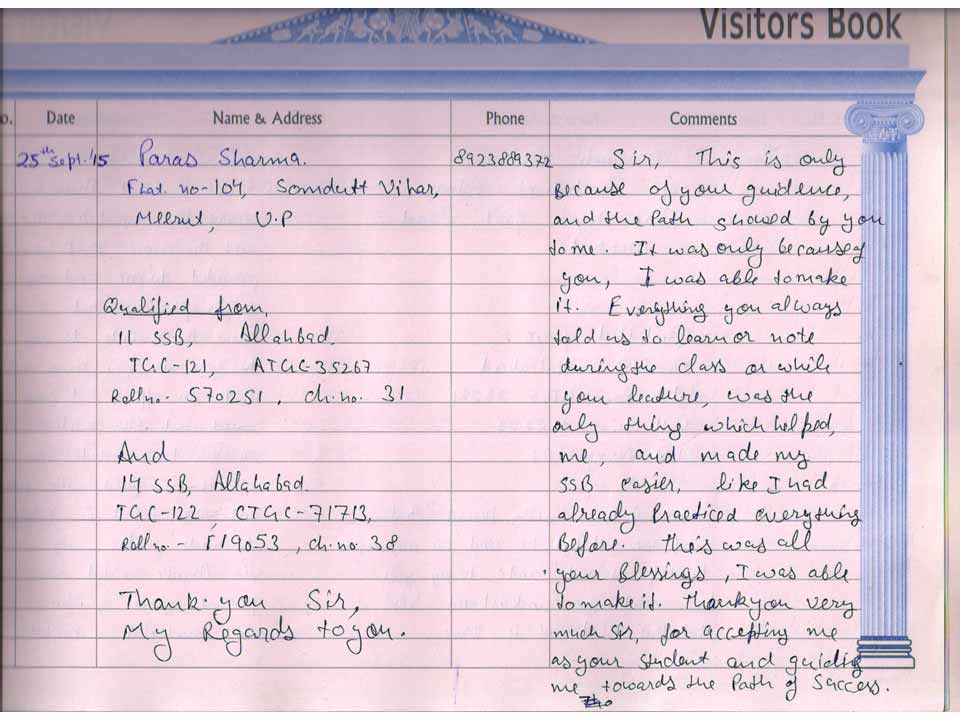 Visitors Book
o. Date Name & Address Phone Comments
25th Sept.'15 Paras Sharma. 8923889372
Flat. no-104, Somdutt Vihar,
Meerut, U.P
Qualified from,
11 SSB, Allahbad.
TGC-121, ATGC-35267
Roll no. 570251, Ch. no. 31
And
14 SSB, Allahabad.
TGC-122, CTGC-71713,
Roll no. - F19053, Ch. no. 38
Thank you Sir,
My Regards to you.
Sir, This is only
Because of your guidence,
and the Path showed by you
to me. It was only because of
you, I was able to make
it. Everything you always
told us to learn or note
during the class or while
your leature, was the
only thing which helped,
me, and made my
SSB easier, like I had
already Practiced everything
Before. This was all
your Blessings, I was able
to make it. Thank you very
much Sir, for accepting me
as your student and guiding
me towards the Path of Success.